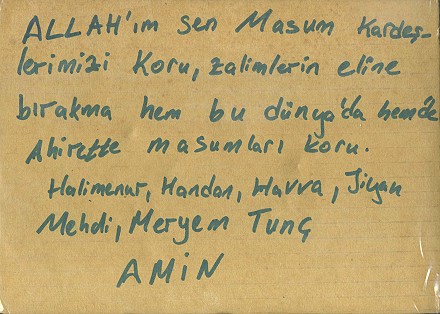 ALLAH'ım sen Masum Kardeş-
lerimizi Koru, zalimlerin eline
bırakma hem bu dünya'da hemde
Ahirette masumları koru.
Halimenur, Handan, Havva,
Mehdi, Meryem Tunç
AMİN